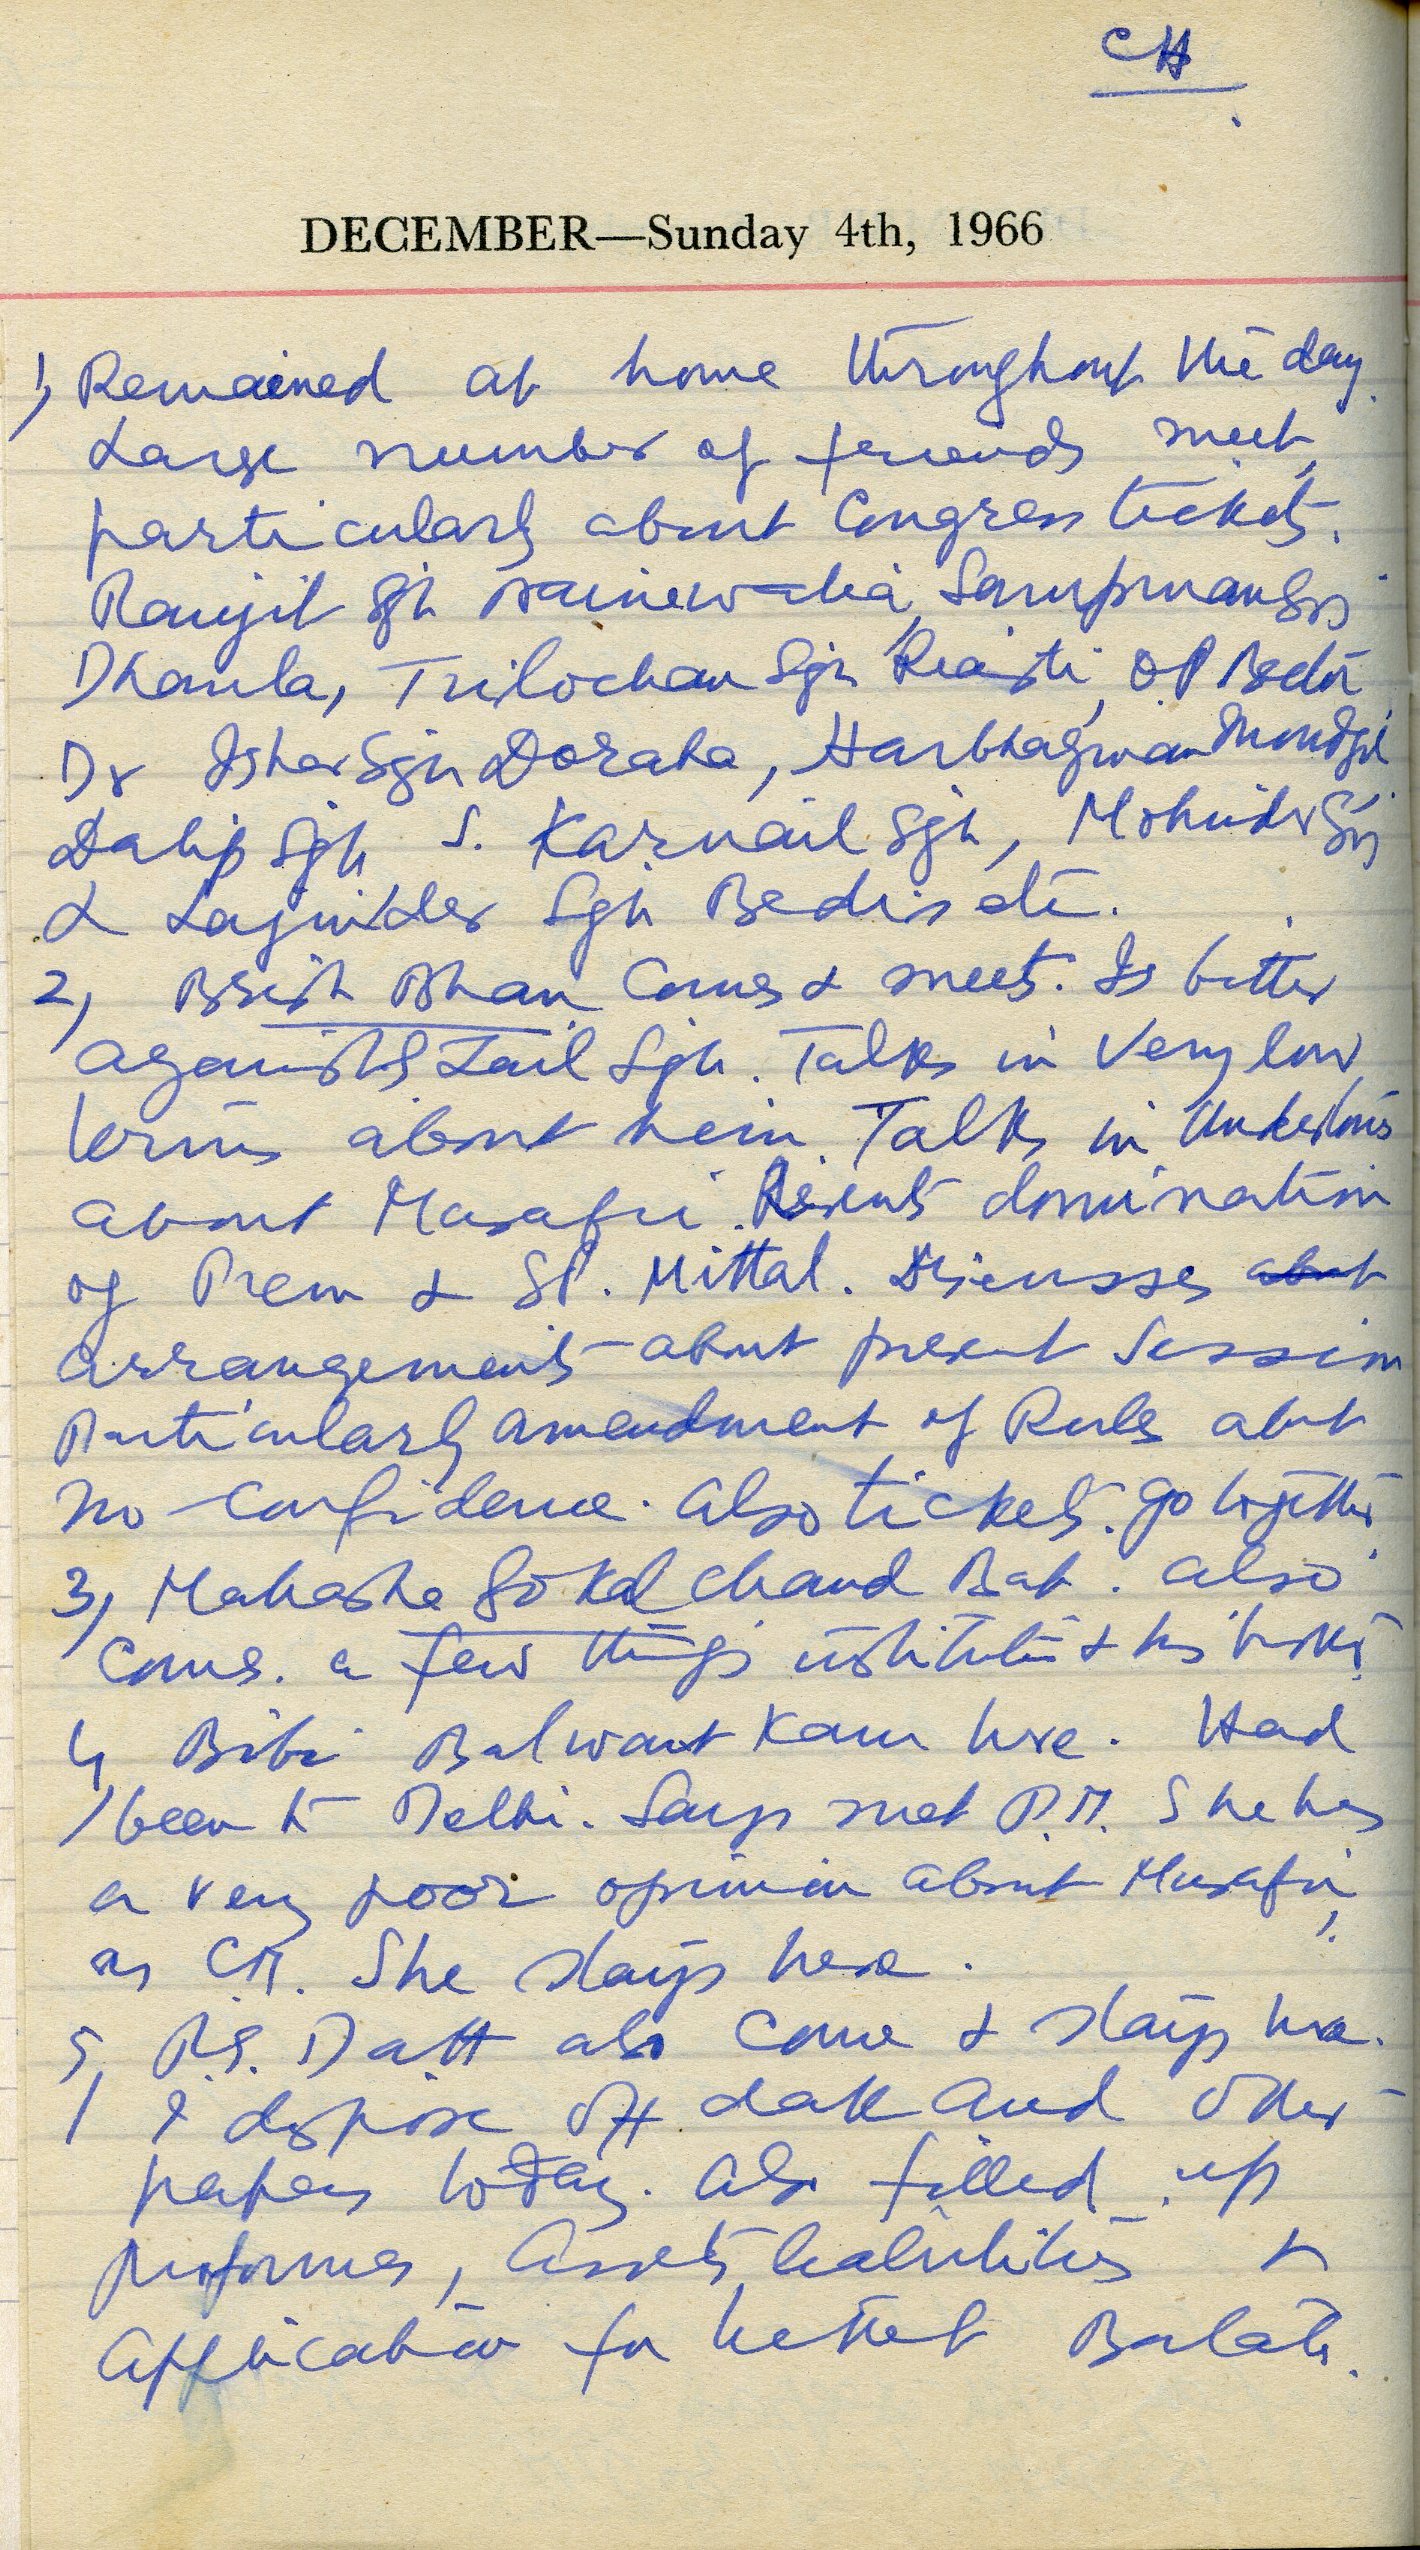 CH
DECEMBER—Sunday 4th, 1966
1) Remained at home throughout the day.
Large number of friends meet,
particularly about Congress tickets.
Ranjit Sgh Nainewalia, Sarupman Sgh
Dhaula, Trilochan Sgh Riasti, OP Bector
Dr Isher Sgh Doraha, Harbhagwan Moudgil
Dalip Sgh S. Karnail Sgh, Mohinder Sgh
& Lajinder Sgh Bedi etc.
2) Brish Bhan Comes & meets. Is bitter
against Zail Sgh. Talks in very low
terms about him. Talks in undertones
about Musafir. Resents domination
of Prem & SP. Mittal. Discusses about
arrangements about present Session
Particularly amendment of Rules abt
no-confidence. Also tickets. go together
3) Mahashe Gokal Chand Bat. also
Come. a few things institution & his books.
4) Bibi Balwant Kaur here. Had
been to Delhi. Says met P.M. She has
a very poor opinion about Musafir
as CM. She stays here.
5) R.S. Datt also Come & stays here.
I dispose off dak and other
papers today. Also filled up
proformas, Assets liabilities &
Application for ticket Balati.